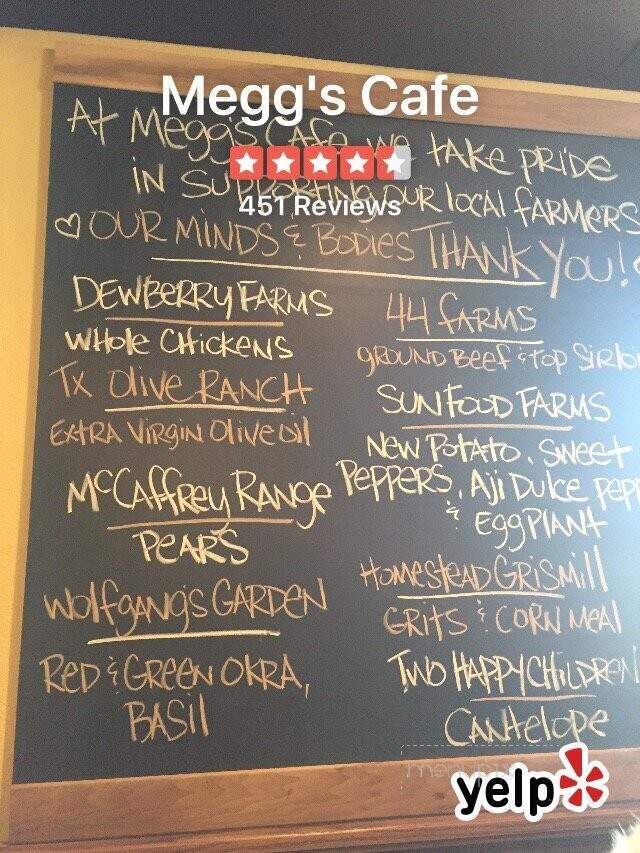 Megg's Cafe
451 Reviews
At Megg's Cafe we take pride
in supporting our local farmers
our minds & bodies Thank you!
Dewberry Farms
Whole Chickens
Tx Olive Ranch
Extra Virgin Olive oil
McCaffrey Range
Pears
Wolfgang's Garden
Red & Green Okra,
Basil
44 farms
Ground Beef & top Sirlo
Sun Food Farms
New Potato, Sweet
Peppers, Aji Dulce pep
& Eggplant
Homestead Grismill
Grits & Corn Meal
Two Happy Children
Cantelope
yelp